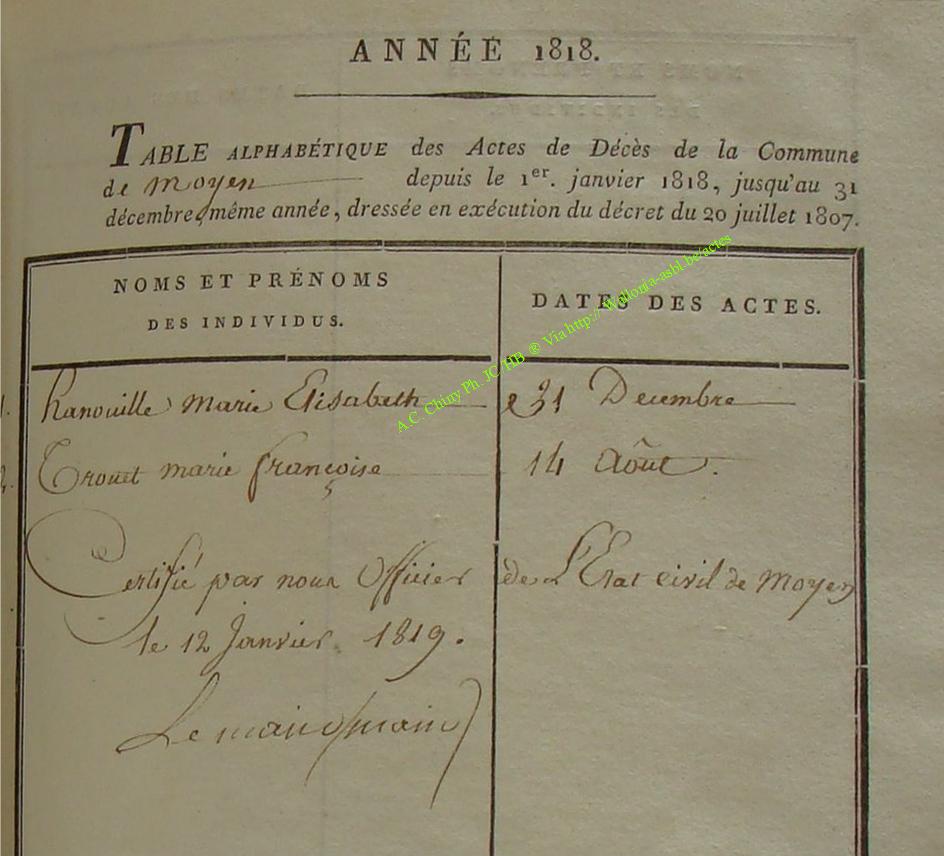 ANNÉE 1818.
TABLE ALPHABÉTIQUE des Actes de Décès de la Commune
de moyen depuis le 1er. janvier 1818, jusqu'au 31
décembre, même année, dressée en exécution du décret du 20 juillet 1807.
NOMS ET PRÉNOMS DES INDIVIDUS.
DATES DES ACTES.
1. hanouille marie Elisabeth 31 Decembre
2. Trouet marie françoise 14 Août.
Certifié par nous Officier de L'Etat civil de moyen
le 12 Janvier 1819.
Le maire
A.C. Chiny Ph. JC/HB ® Via http://Wallonia-asbl.be/actes